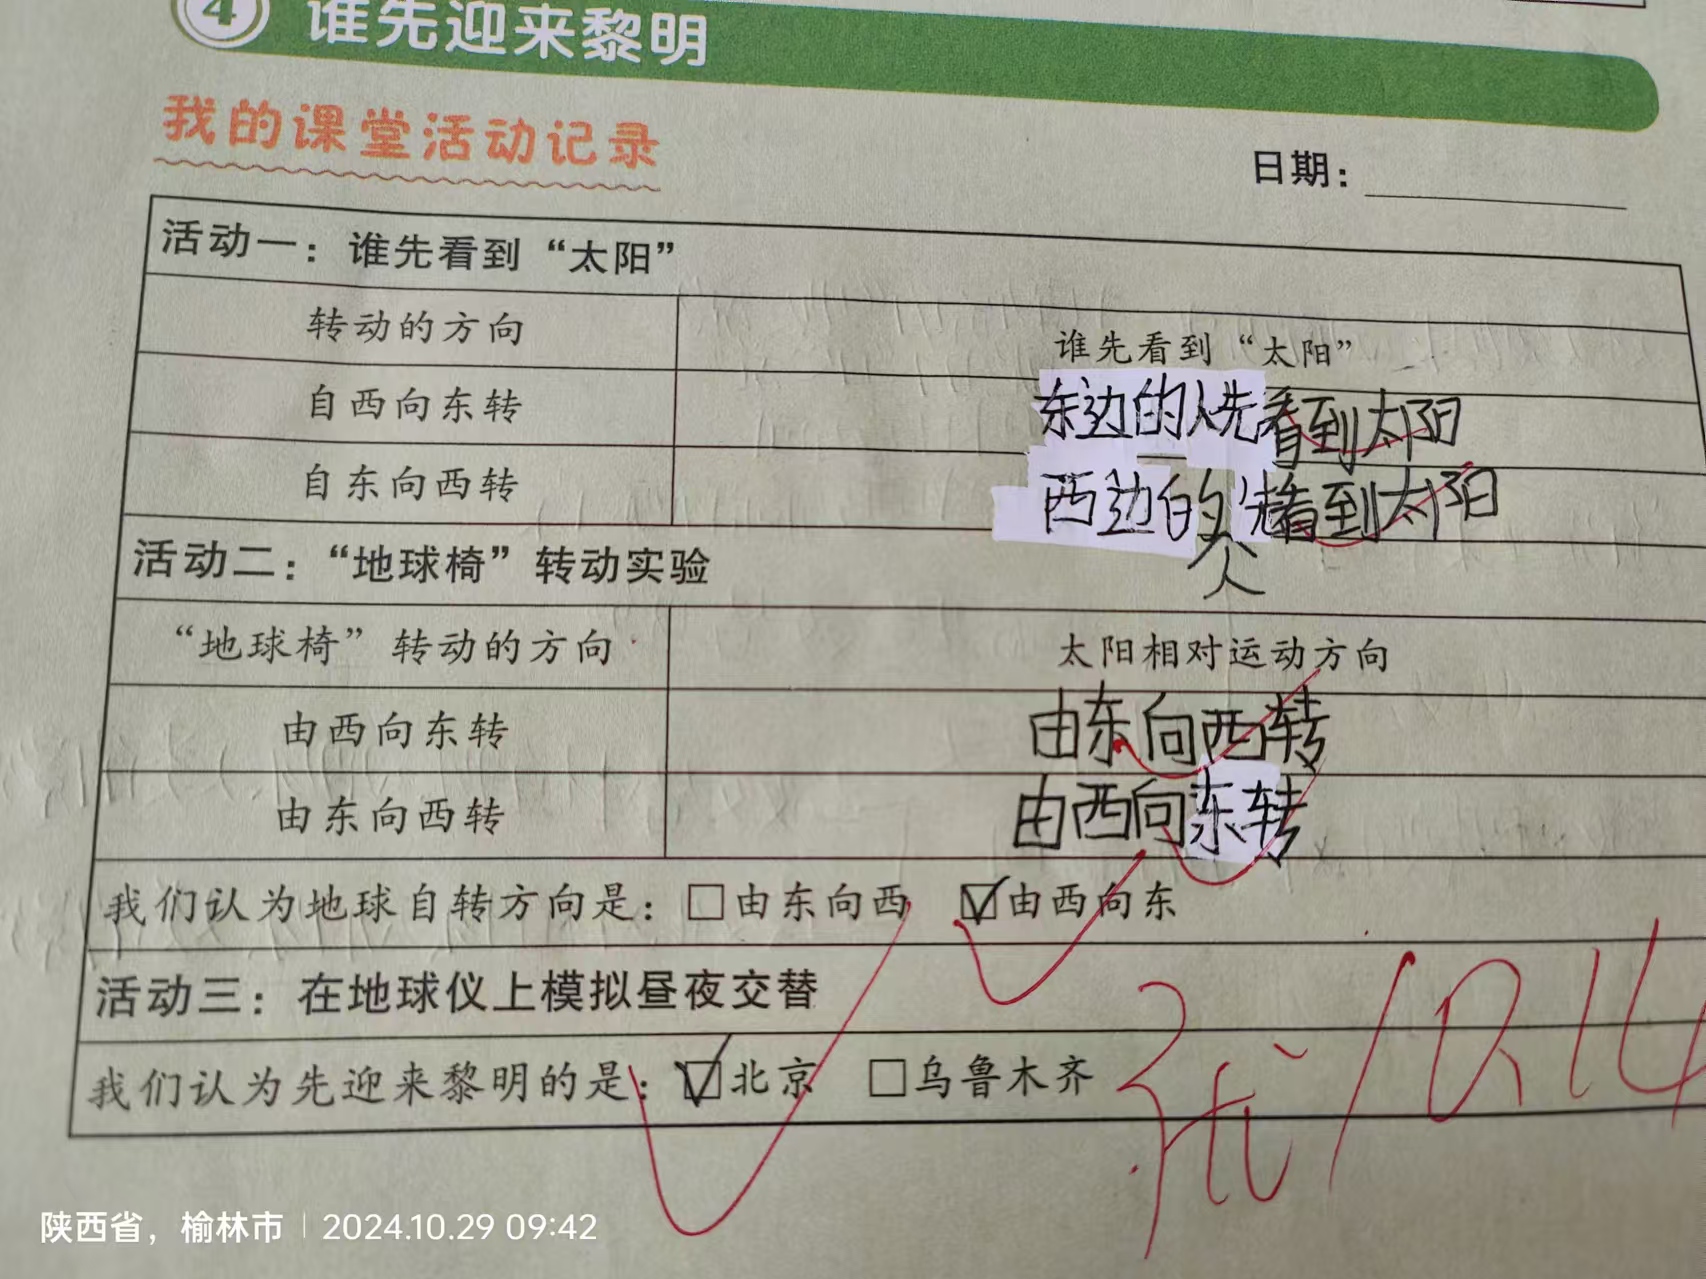 4 谁先迎来黎明
我的课堂活动记录
日期：
活动一：谁先看到“太阳”
转动的方向 谁先看到“太阳”
自西向东转 东边的人先看到太阳
自东向西转 西边的人先看到太阳
活动二：“地球椅”转动实验
“地球椅”转动的方向 太阳相对运动方向
由西向东转 由东向西转
由东向西转 由西向东转
我们认为地球自转方向是：□由东向西 ☑由西向东
活动三：在地球仪上模拟昼夜交替
我们认为先迎来黎明的是：☑北京 □乌鲁木齐
陕西省，榆林市 | 2024.10.29 09:42